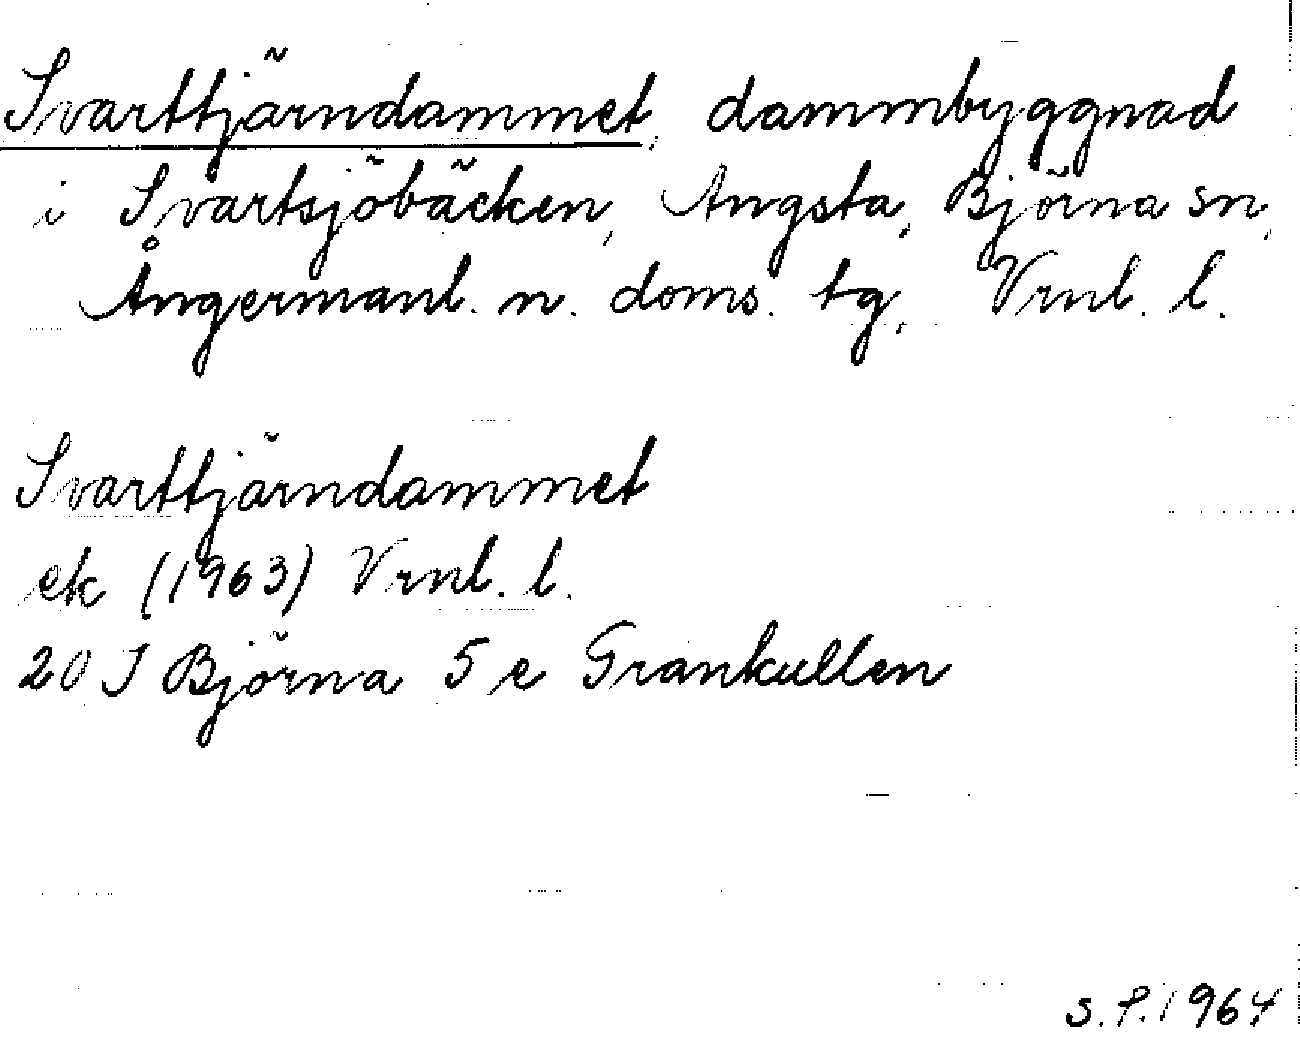 Svarttjärndammet, dammbyggnad
i Svartsjöbäcken, Angsta, Björna sn,
Ångermanl. n. doms. tg, Vrnl. l.
Svarttjärndammet
ek (1963) Vrnl. l.
20 J Björna 5 e Grankullen
S.P. 1964